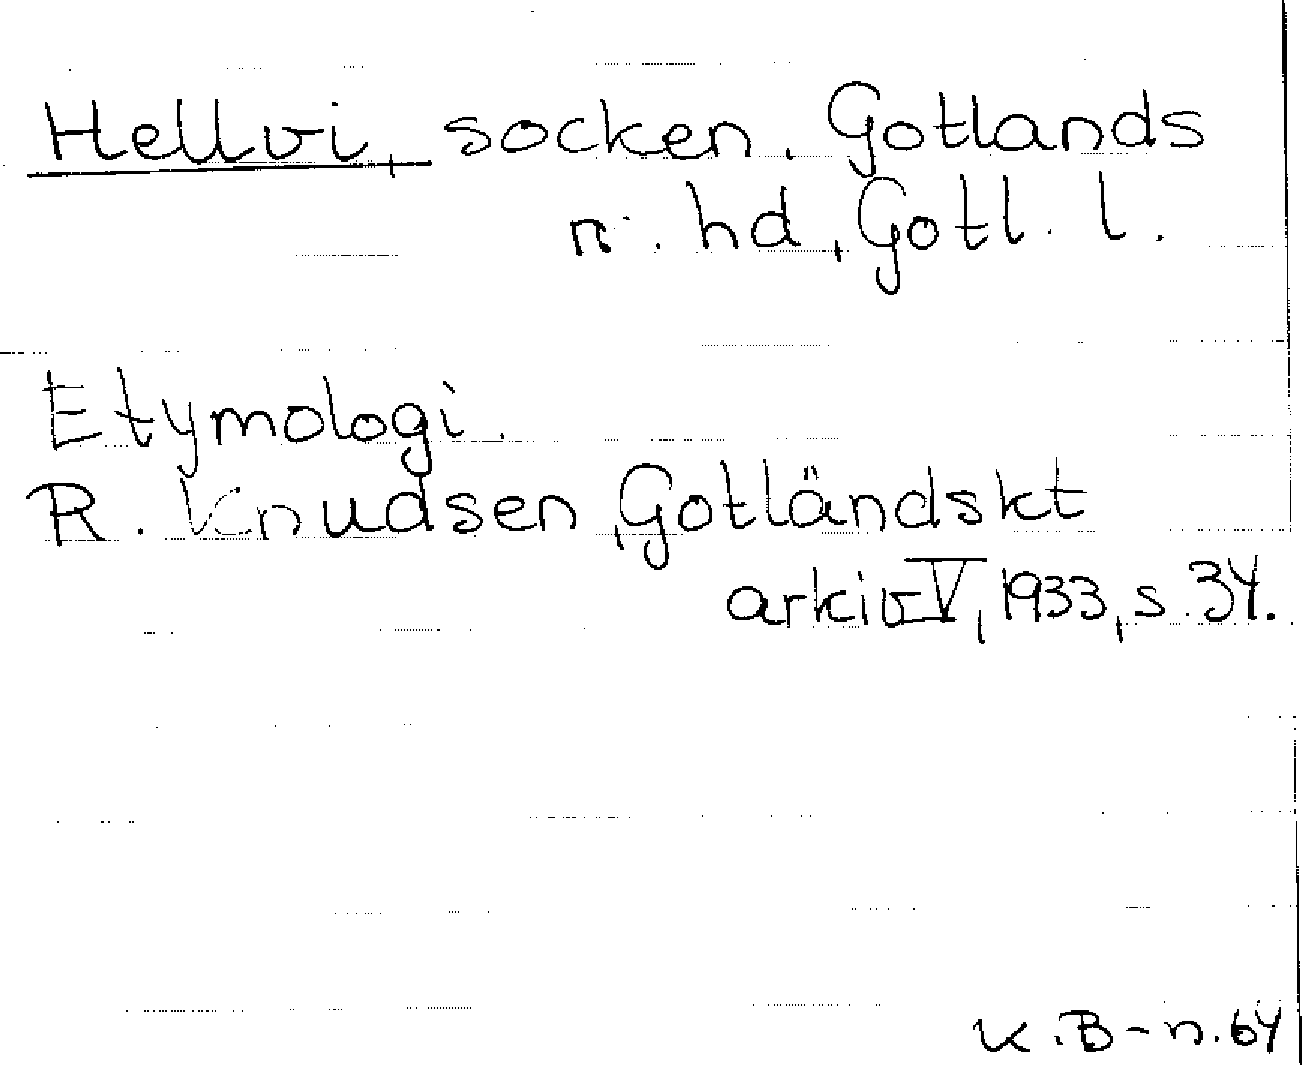 Hellvi, socken. Gotlands
n. hd, Gotl. l.
Etymologi.
R. Knudsen, Gotländskt
arkiv V, 1933, s. 34.
K.B-n. 64